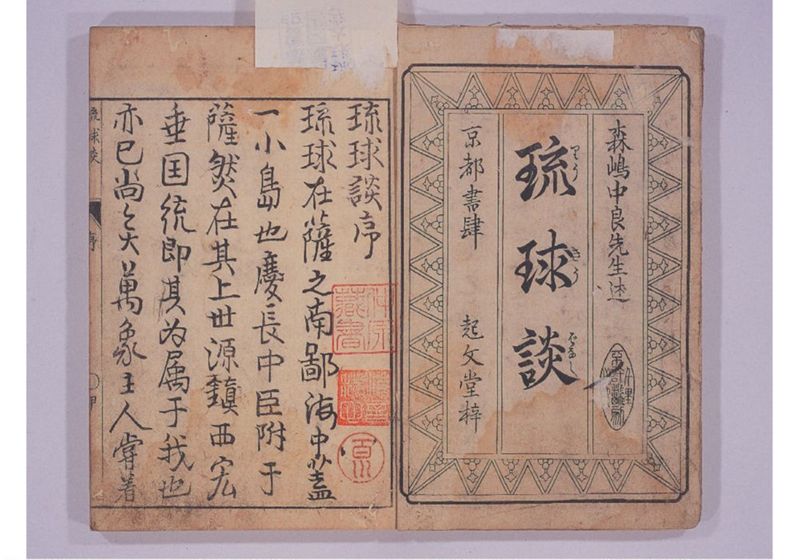 森嶋中良先生述
琉球談
りう きう ばなし
京都書肆 起文堂梓
琉球談序
琉球在薩之南鄙海中蓋
一小島也慶長中臣附于
薩然在其上世源鎮西宏
垂国統即其为属于我也
亦已尚矣萬象主人嘗著
琉球談 序